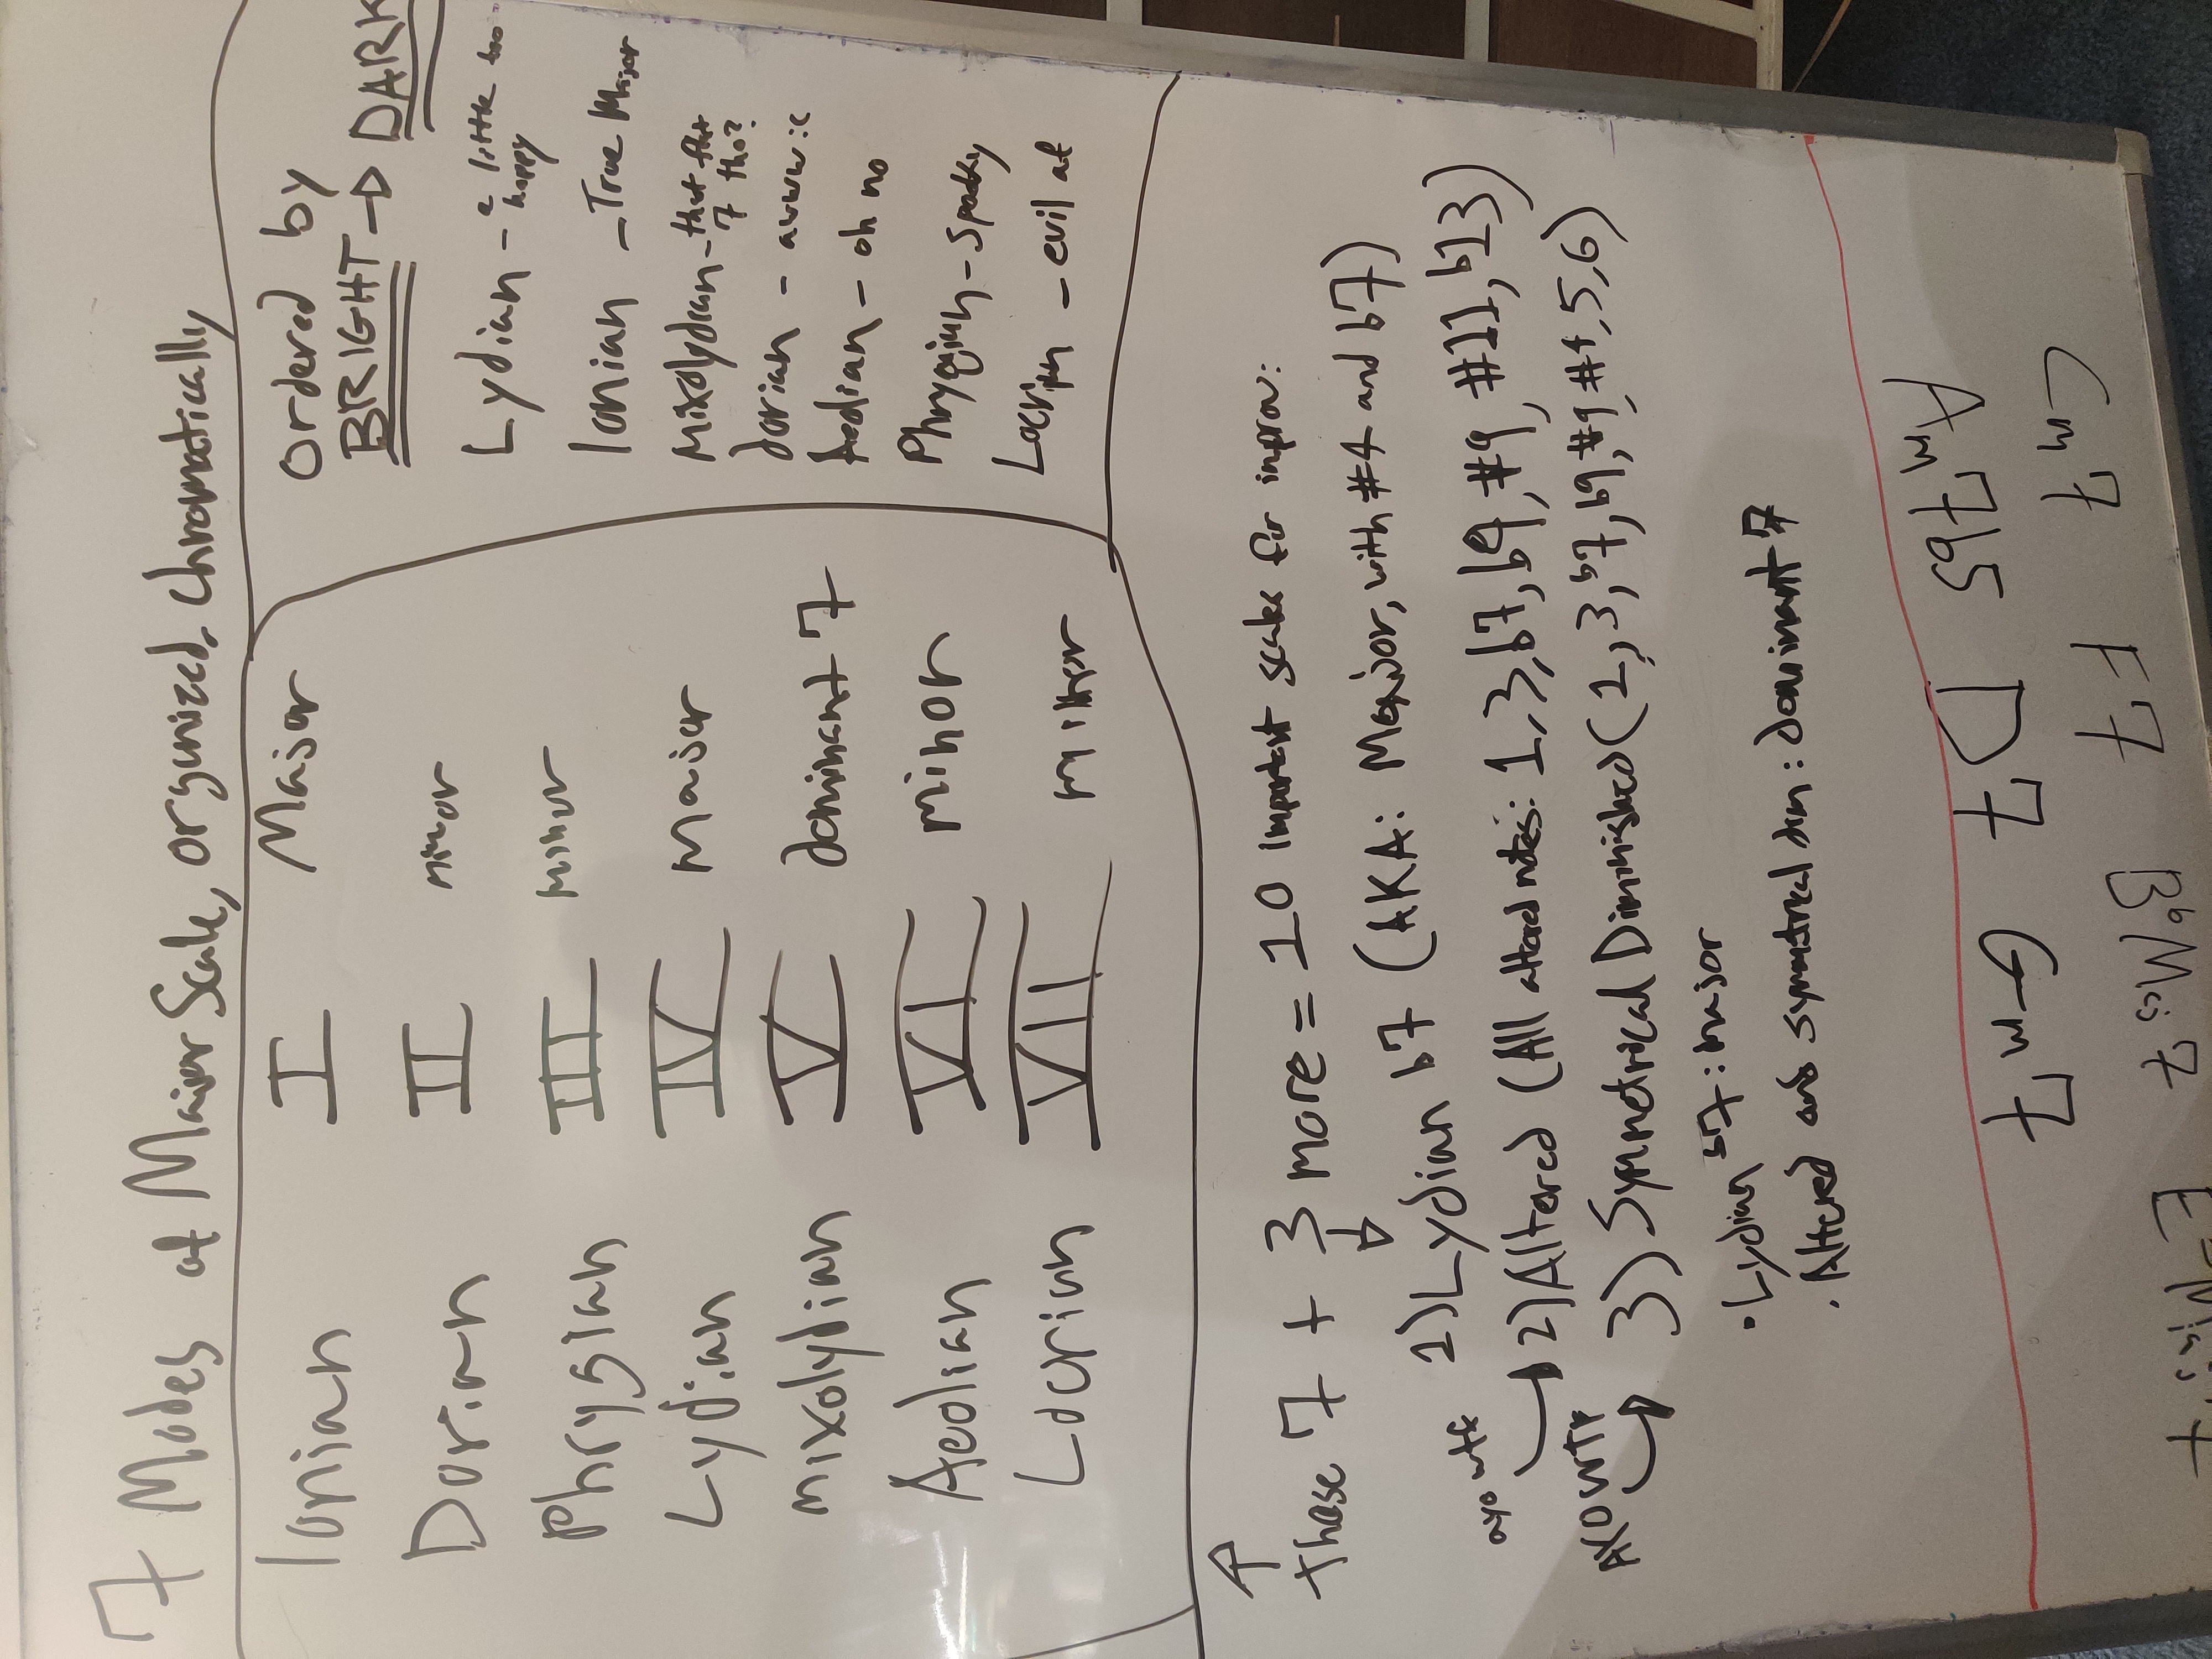 7 Modes of Major Scale, organized chromatically
Ionian I Major
Dorian II minor
Phrygian III minor
Lydian IV Major
Mixolydian V dominant 7
Aeolian VI minor
Locrian VII minor
Ordered by
BRIGHT → DARK
Lydian - a little too
happy
Ionian - True Major
Mixolydian - that flat
7 tho?
dorian - awww :c
Aeolian - oh no
Phrygian - spooky
Locrian - evil af
↑
these 7 + 3 more = 10 important scales for improv:
↓
1) Lydian b7 (AKA: Major, with #4 and b7)
ayo wtf
2) Altered (All altered notes: 1, 3, b7, b9, #9, #11, b13)
AYO WTF
3) Symmetrical Diminished (1, 3, b7, b9, #9, #4, 5, 6)
• Lydian b7: major
• Altered and symmetrical dim: dominant 7
Cm7 F7 BbMaj7
Am7b5 D7 Gm7